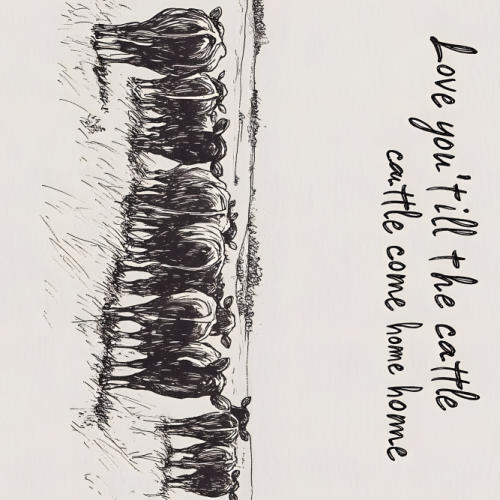 Love you't ill the cattle
cattle come home home